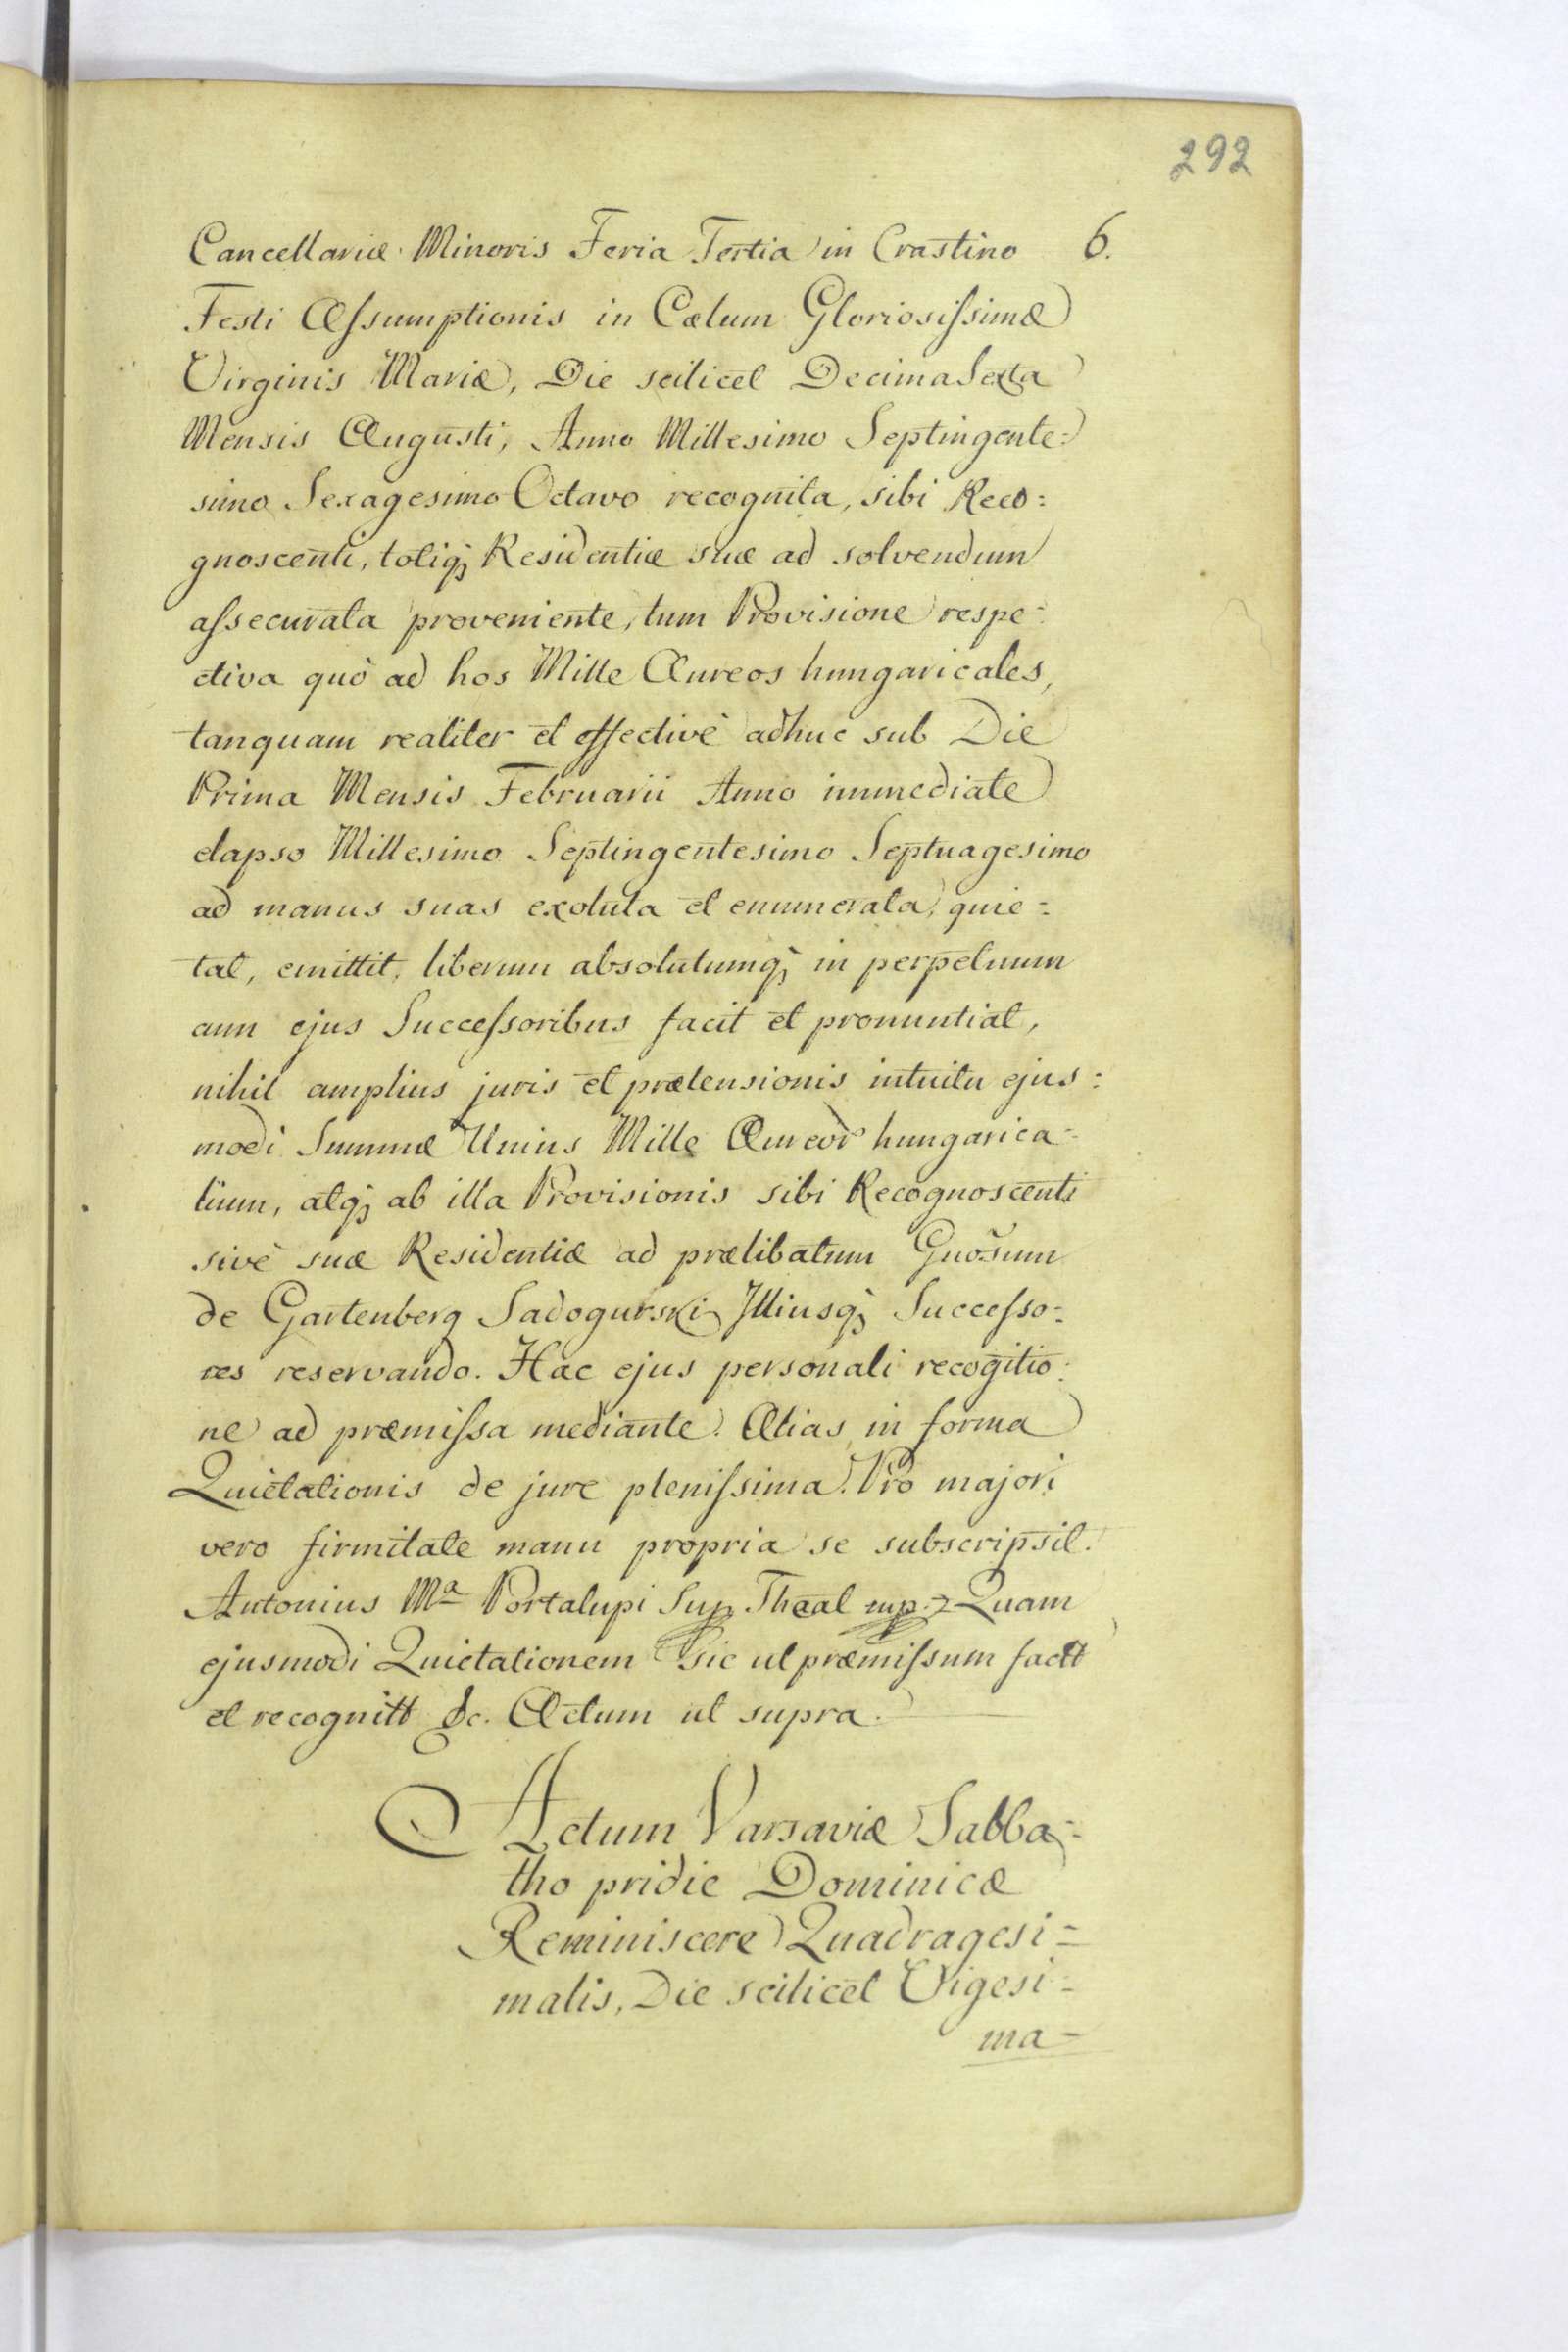 292
Cancellariæ Minoris Feria Tertia in Crastino 6.
Festi Assumptionis in Cœlum Gloriosissimæ
Virginis Mariæ, Die scilicet Decima Sexta
Mensis Augusti, Anno Millesimo Septingente=
simo Sexagesimo Octavo recognita, sibi Reco=
gnoscenti, totiq; Residentiæ suæ ad solvendum
assecurata proveniente, tum Provisione respe=
ctiva quò ad hos Mille Aureos hungaricales,
tanquam realiter et effectivè adhuc sub Die
Prima Mensis Februarii Anno immediate
elapso Millesimo Septingentesimo Septuagesimo
ad manus suas exoluta et enumerata, quie=
tat, emittit, liberum absolutumq; in perpetuum
cum ejus Successoribus facit et pronuntiat,
nihil amplius juris et prætensionis intuitu ejus=
modi Summæ Unius Mille Aureor̃ hungarica=
lium, atq; ab illa Provisionis sibi Recognoscenti
sivè suæ Residentiæ ad prælibatum Gnõsum
de Gartenberg Sadogurski Illiusq; Successo=
res reservando. Hac ejus personali recognitio=
ne ad præmissa mediante. Alias in forma
Quietationis de jure plenissima. Pro majori
vero firmitate manu propria se subscripsit.
Antonius Mª Portalupi Sup Theal mp. Quam
ejusmodi Quietationem sic ut præmissum factt
et recognitt &c. Actum ut supra.
Actum Varsaviæ Sabba=
tho pridie Dominicæ
Reminiscere Quadragesi=
malis, Die scilicet Vigesi=
ma-